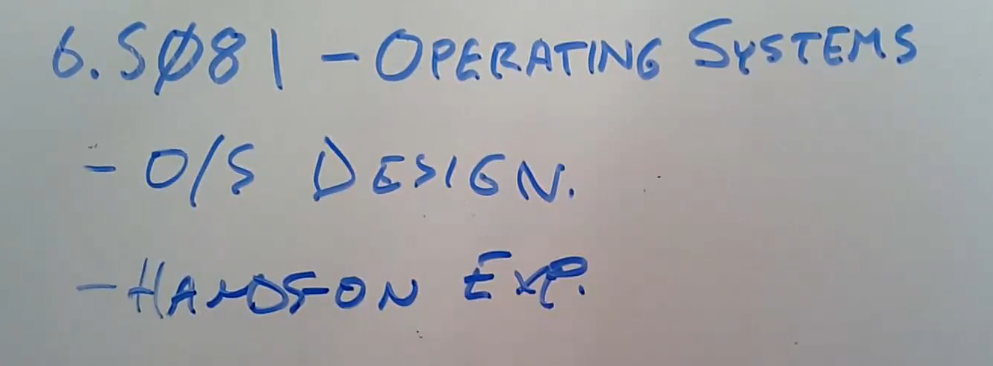 6.SØ81 - OPERATING SYSTEMS
- O/S DESIGN.
- HANDS-ON EXP.